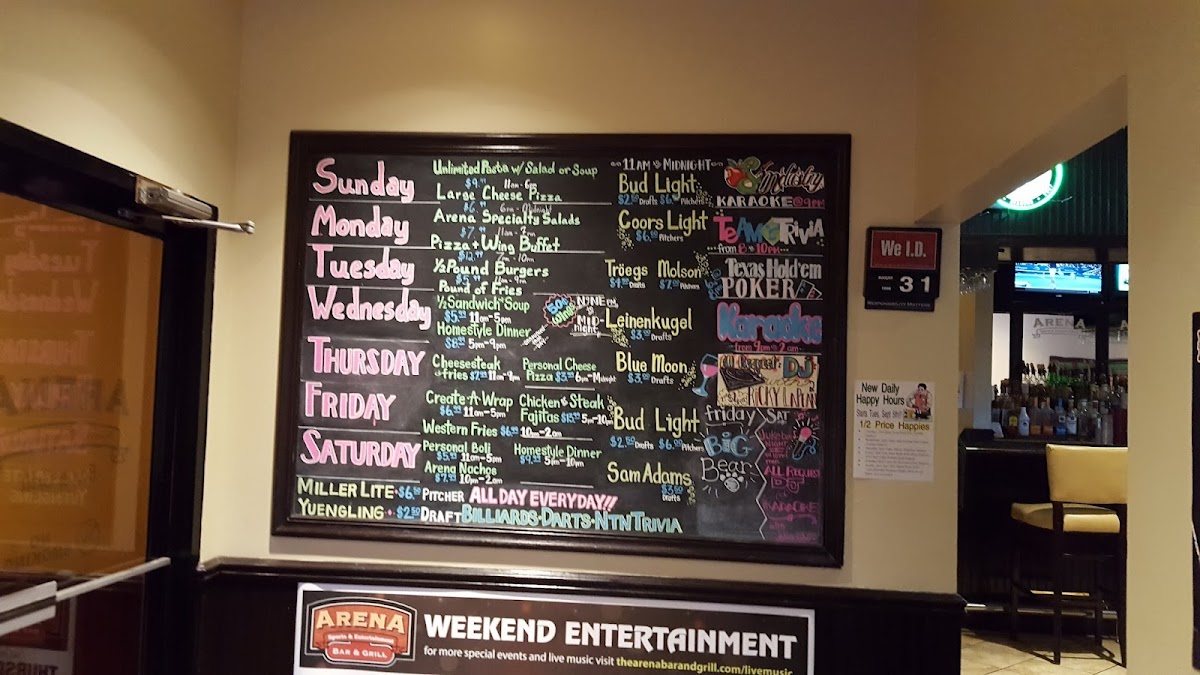 Sunday
Unlimited Pasta w/ Salad or Soup
$9.99 11am-6pm
Large Cheese Pizza
$6.99 6pm-Midnight
Monday
Arena Specialty Salads
$7.99
Pizza + Wing Buffet
$12.99 7pm-10pm
Tuesday
1/2 Pound Burgers
Pound of Fries
Wednesday
1/2 Sandwich + Soup
$5.99 11am-5pm
Homestyle Dinner
$8.99 5pm-9pm
50¢ Wings
NINE PM
MID-
night
Thursday
Cheesesteak
+ fries $7.99
Personal Cheese
Pizza $3.99 6pm-Midnight
Friday
Create-A-Wrap
$6.99 11am-5pm
Chicken & Steak
Fajitas
5pm-10pm
Western Fries $6.99 10pm-2am
Saturday
Personal Boli
$5.99 11am-5pm
Homestyle Dinner
$9.99 5pm-10pm
Arena Nachos
$7.99 10pm-2am
Miller Lite $6.50 Pitcher ALL DAY EVERYDAY!!
Yuengling $2.50 Draft Billiards-Darts-NTN Trivia
11am to Midnight
Bud Light
$2.50 Drafts $6.50 Pitchers
Coors Light
$6.50 Pitchers
Tröegs Molson
Drafts Pitchers
Leinenkugel
$3.50 Drafts
Blue Moon
$3.50 Drafts
Bud Light
$2.50 Drafts $6.50 Pitchers
Sam Adams
$3.50
Drafts
KARAOKE @9pm
TeAm TRiViA
from 8 to 10pm
Texas Hold'em
POKER
Karaoke
from 9pm to 2am
All Request DJ
friday
BiG
Bear
SAT
ALL REQUEST
DJ
KARAOKE
We I.D.
31
RESPONSIBILITY MATTERS
New Daily
Happy Hours
Starts Tues. Sept 5th!!
1/2 Price Happies
ARENA
Sports & Entertainment
BAR & GRILL
WEEKEND ENTERTAINMENT
for more special events and live music visit thearenabarandgrill.com/livemusic
ARENA